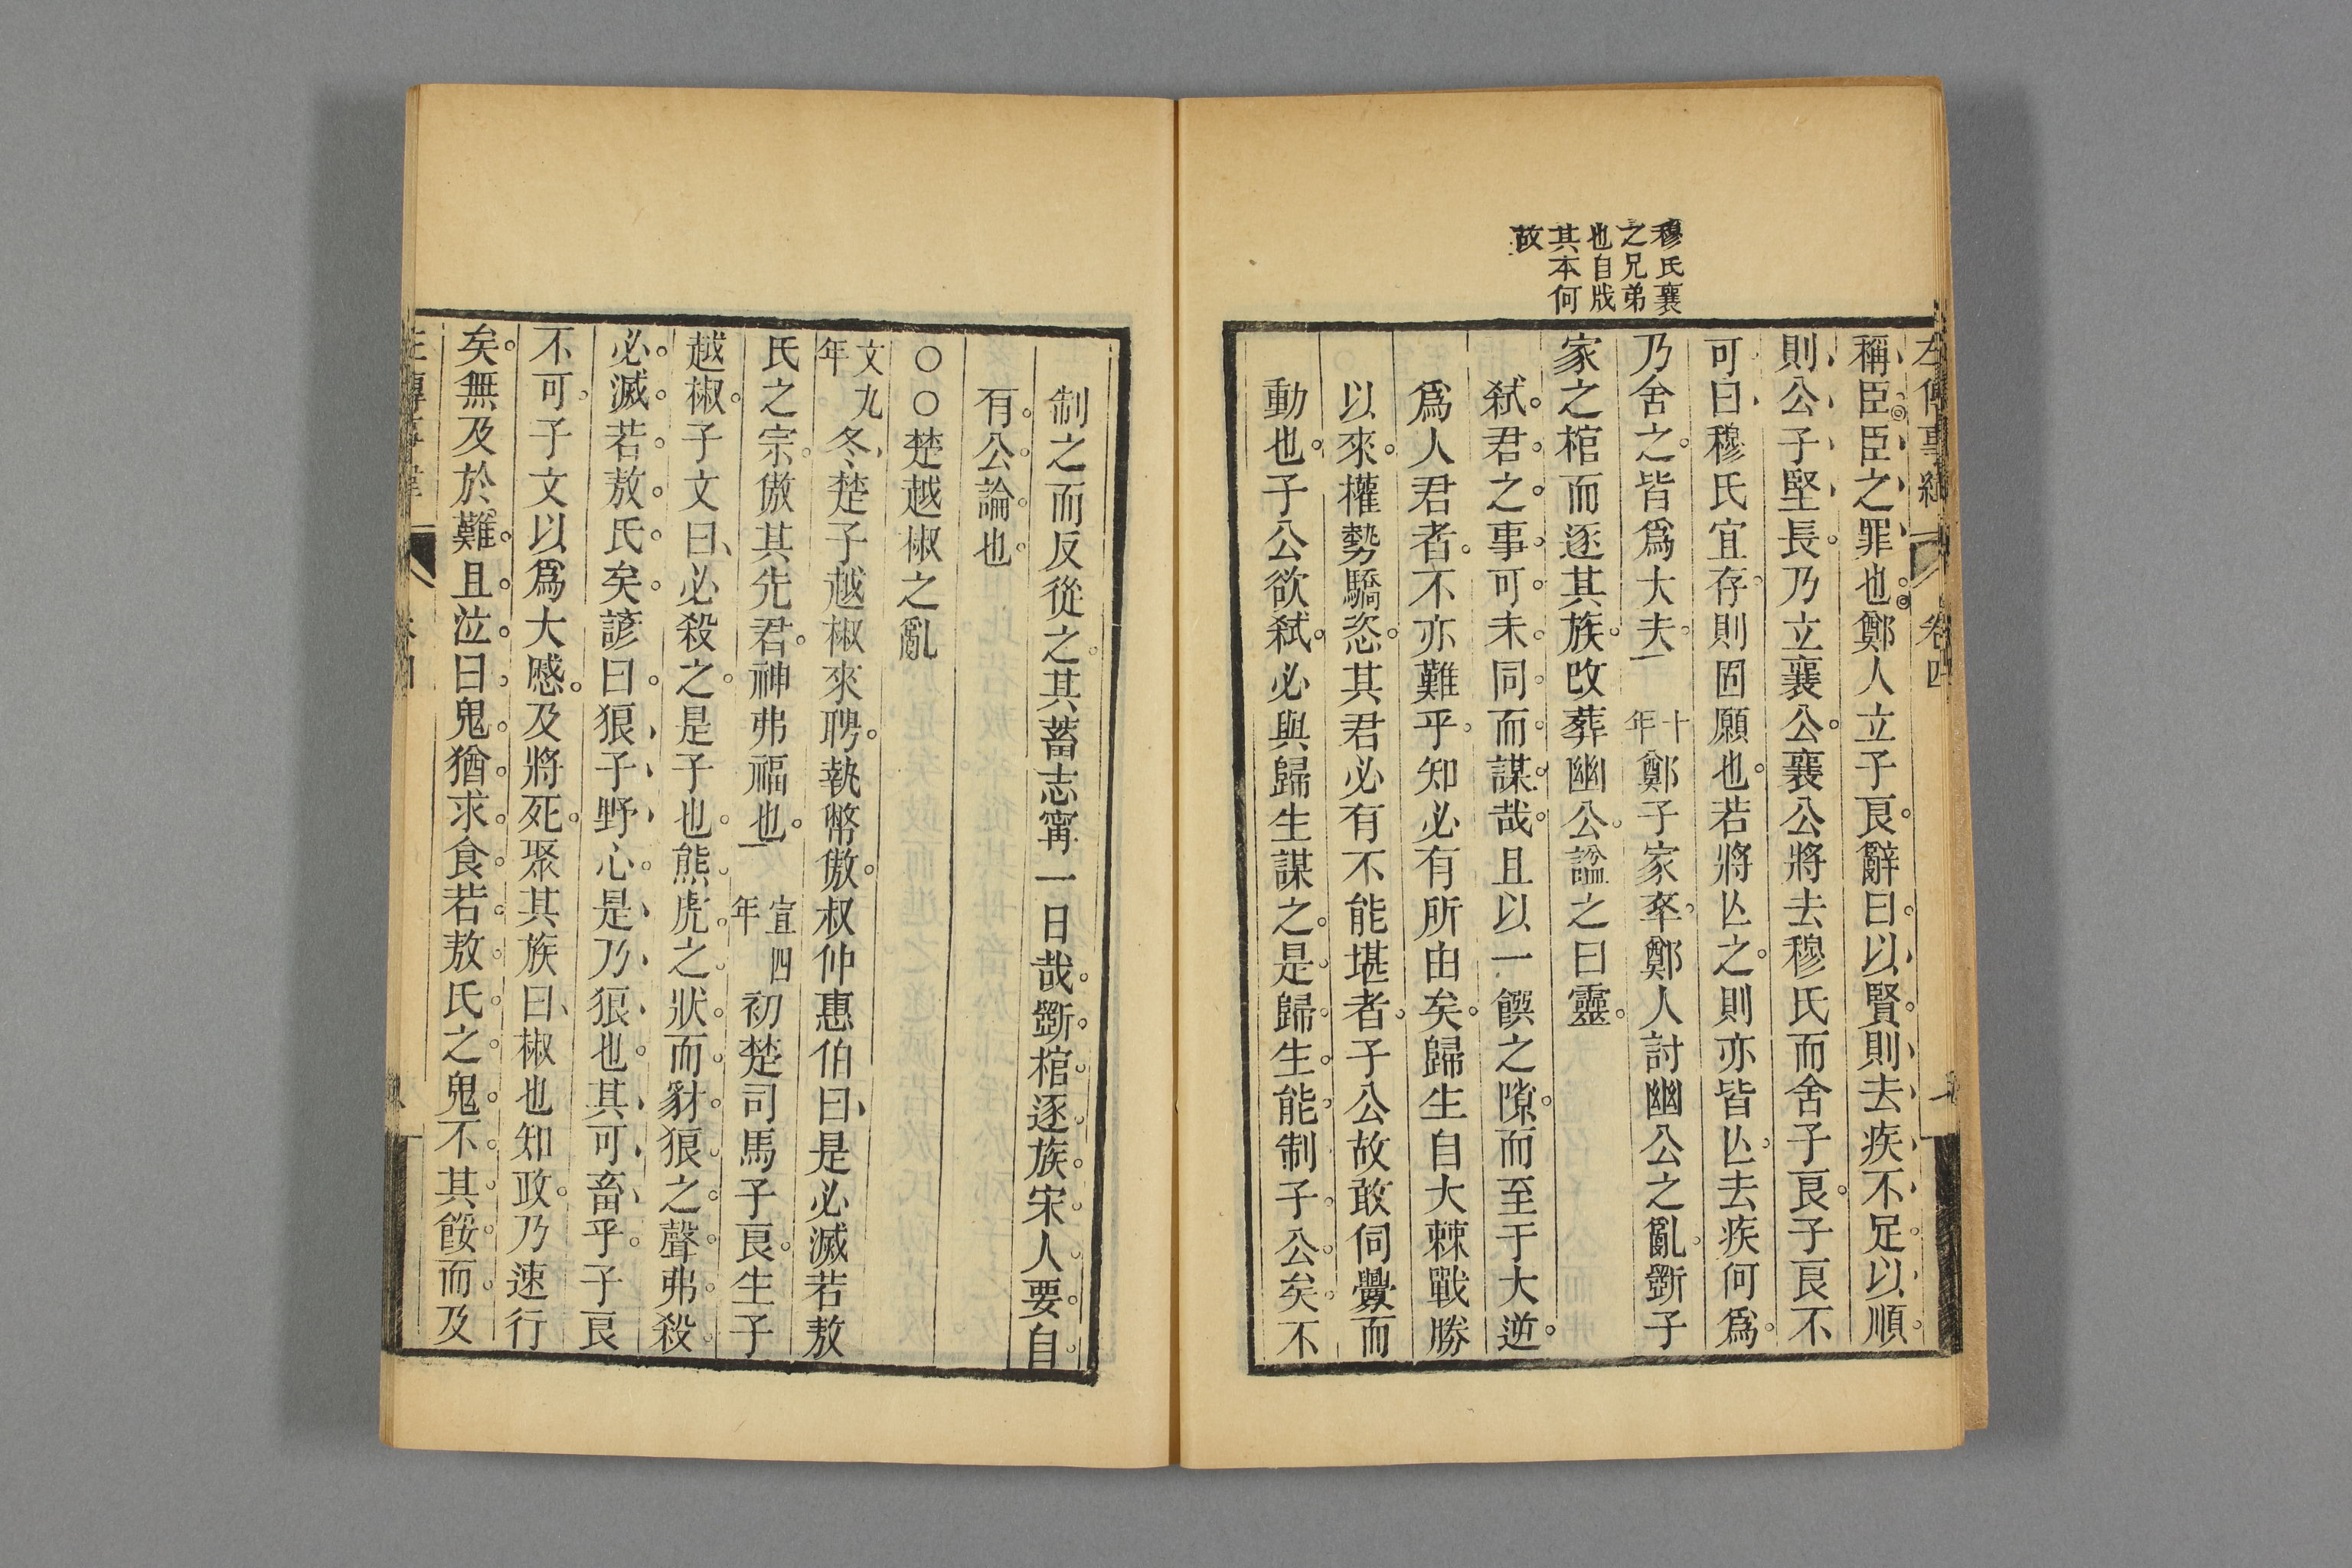 穆氏襄
之兄弟
也自戕
其本何
故
左傳事緯 卷四
稱臣臣之罪也鄭人立子良辭曰以賢則去疾不足以順
則公子堅長乃立襄公襄公將去穆氏而舍子良子良不
可曰穆氏宜存則固願也若將亾之則亦皆亾去疾何爲
乃舍之皆爲大夫 十年鄭子家卒鄭人討幽公之亂斵子
家之棺而逐其族改葬幽公諡之曰靈
弑君之事可未同而謀哉且以一饌之隙而至于大逆
爲人君者不亦難乎知必有所由矣歸生自大棘戰勝
以來權勢驕恣其君必有不能堪者子公故敢伺釁而
動也子公欲弑必與歸生謀之是歸生能制子公矣不
制之而反從之其蓄志甯一日哉斵棺逐族宋人要自
有公論也
〇〇楚越椒之亂
文九年冬楚子越椒來聘執幣傲叔仲惠伯曰是必滅若敖
氏之宗傲其先君神弗福也 宣四年初楚司馬子良生子
越椒子文曰必殺之是子也熊虎之狀而豺狼之聲弗殺
必滅若敖氏矣諺曰狼子野心是乃狼也其可畜乎子良
不可子文以爲大慼及將死聚其族曰椒也知政乃速行
矣無及於難且泣曰鬼猶求食若敖氏之鬼不其餒而及
左傳事緯 卷四